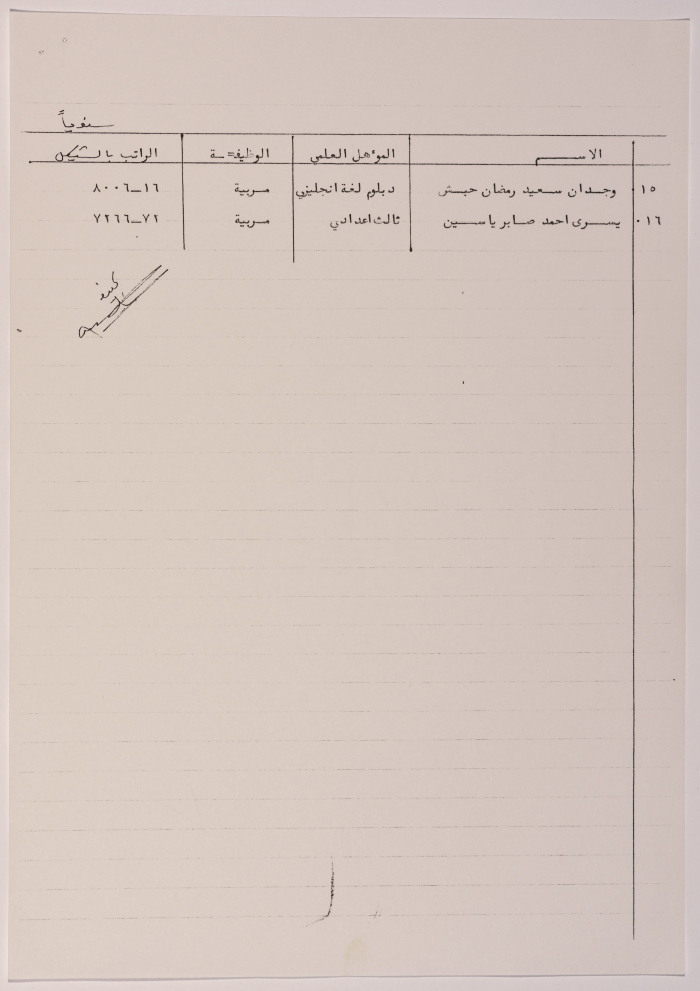 سنوياً
الاســـم المؤهل العلمي الوظيفـة الراتب بالشيكل
١٥٠ وجدان سعيد رمضان حبش دبلوم لغة انجليزي مـربية ١٦ــ٨٠٠٦
١٦٠ يســرى احمد صابر ياســين ثالث اعدادي مـربية ٧٢ــ٧٢٦٦